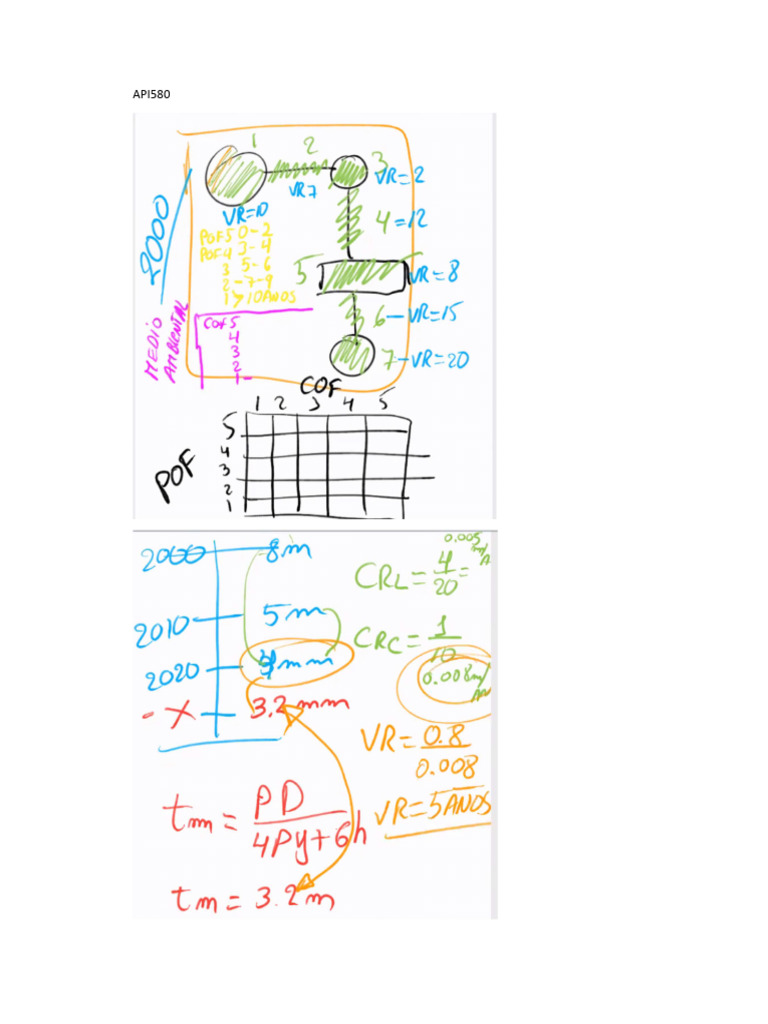 API580
1 2 3
VR=2
VR7
VR=10
2000
4=12
POF5 0-2
POF4 3-4
3 5-6
2-7-9
1 >10 AÑOS
5 VR=8
6-VR=15
7-VR=20
MEDIO
AMBIENTAL
COF5
4
3
2
1-
COF
1 2 3 4 5
POF
5
4
3
2
1
2000 8m
2010 5m
2020 4mm
-X 3.2mm
0.005
CRL=4/20=
CRC=1/10
0.008m/
VR=0.8/0.008
VR=5AÑOS
tm=PD/4Py+6h
tm=3.2m